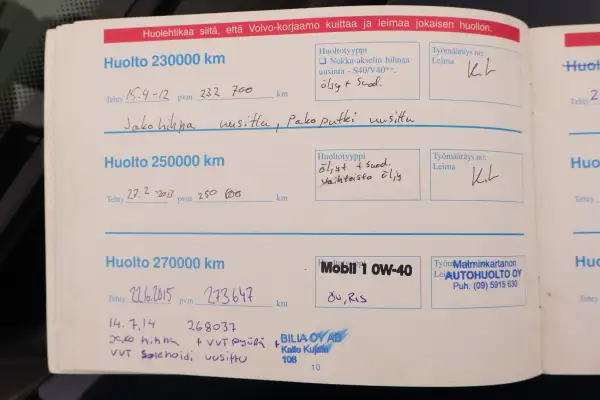 Huolehtikaa siitä, että Volvo-korjaamo kuittaa ja leimaa jokaisen huollon.
Huolto 230000 km
Huoltotyyppi
❑ Nokka-akselin hihnan
uusinta - S40/V40**.
öljy + suod.
Työmääräys no:
Leima
K.L
Tehty 15.4-12 pvm 232 700 km
Jakohihna uusittu, Pakoputki uusittu
Huolto 250000 km
Huoltotyyppi
öljyt + suod.
vaihteisto öljy
Työmääräys no:
Leima
K.L
Tehty 27.2 2013 pvm 250 600 km
Huolto 270000 km
Huoltotyyppi
Mobil 1 0W-40
Öv, RIS
Malminkartanon
AUTOHUOLTO OY
Puh. (09) 5915 630
Tehty 22.6.2015 pvm 273647 km
14.7.14 268037
Jako hihna + VVT pyörä +
VVT solenoidi uusittu
BILIA OY AB
Kalle Kujala
108
10
Huo
Huo